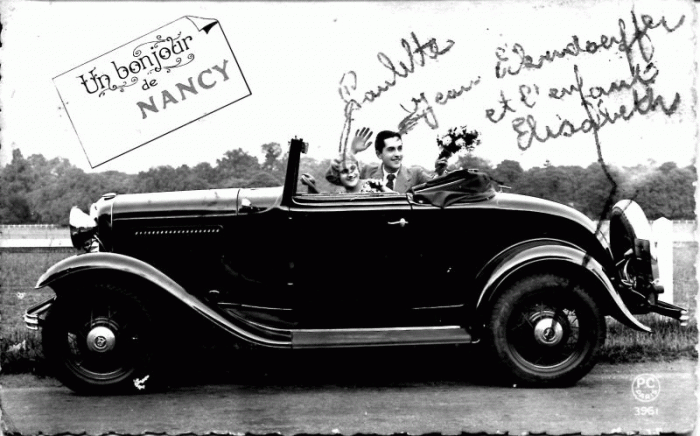 Un bonjour
de
NANCY
Paulette
Jean
et l'enfant
Elisabeth
PC
PARIS
3961